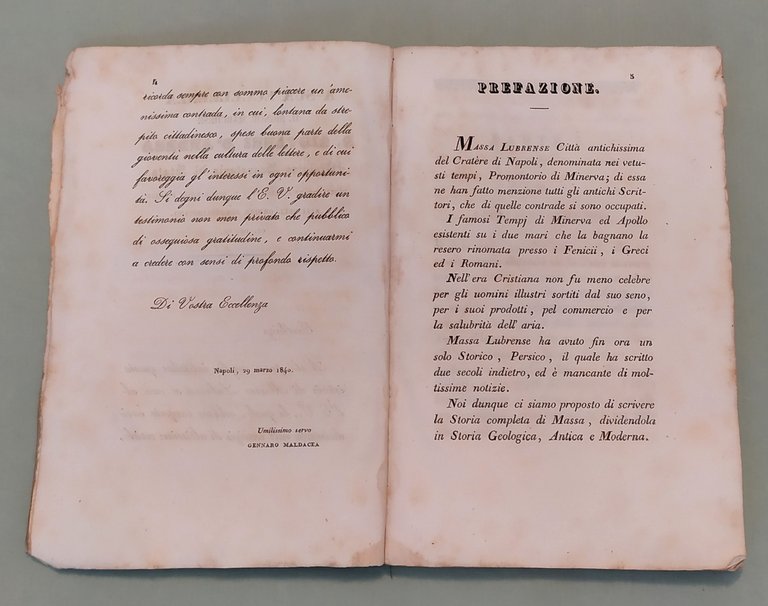 4
ricorda sempre con sommo piacere un' ame-
nissima contrada, in cui, lontana da stre-
pito cittadinesco, spese buona parte della
gioventù nella cultura delle lettere, e di cui
favoreggia gl' interessi in ogni opportuni-
tà. Si degni dunque l' E. V. gradire un
testimonio non men privato che pubblico
di ossequiosa gratitudine, e continuarmi
a credere con sensi di profondo rispetto.
Di Vostra Eccellenza
Napoli, 29 marzo 1840.
Umilissimo servo
GENNARO MALDACEA
5
PREFAZIONE.
MASSA LUBRENSE Città antichissima
del Cratère di Napoli, denominata nei vetu-
sti tempi, Promontorio di Minerva; di essa
ne han fatto menzione tutti gli antichi Scrit-
tori, che di quelle contrade si sono occupati.
I famosi Tempj di Minerva ed Apollo
esistenti su i due mari che la bagnano la
resero rinomata presso i Fenicii, i Greci
ed i Romani.
Nell' era Cristiana non fu meno celebre
per gli uomini illustri sortiti dal suo seno,
per i suoi prodotti, pel commercio e per
la salubrità dell' aria.
Massa Lubrense ha avuto fin ora un
solo Storico, Persico, il quale ha scritto
due secoli indietro, ed è mancante di mol-
tissime notizie.
Noi dunque ci siamo proposto di scrivere
la Storia completa di Massa, dividendola
in Storia Geologica, Antica e Moderna.